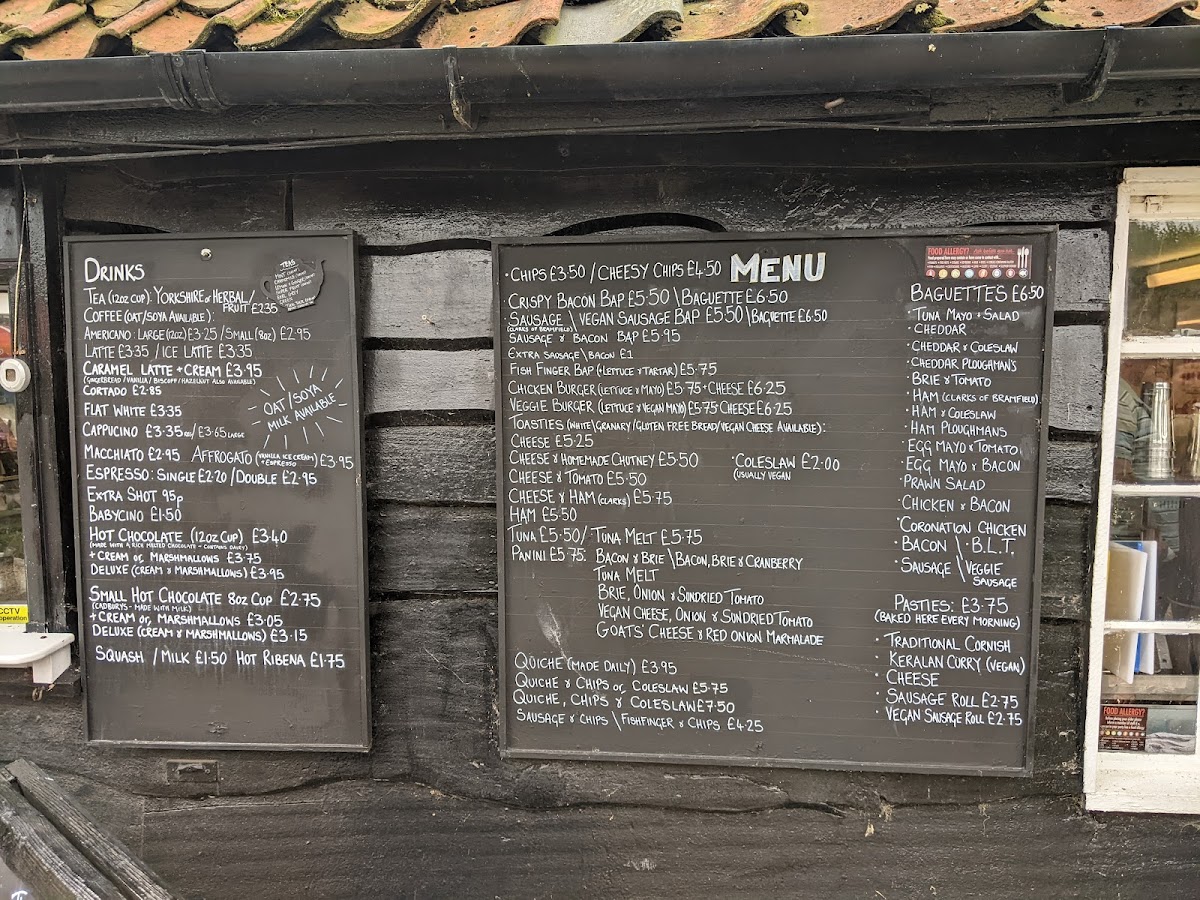 DRINKS
TEAS
TEA (12OZ CUP): YORKSHIRE or HERBAL/
FRUIT £2.35
COFFEE (OAT/SOYA AVAILABLE):
AMERICANO: LARGE (12OZ) £3.25 / SMALL (8OZ) £2.95
LATTE £3.35 / ICE LATTE £3.35
CARAMEL LATTE + CREAM £3.95
(GINGERBREAD / VANILLA / BISCOFF / HAZELNUT ALSO AVAILABLE)
CORTADO £2.85
OAT/SOYA
MILK AVAILABLE
FLAT WHITE £3.35
CAPPUCINO £3.35 REG/£3.65 LARGE
MACCHIATO £2.95 AFFROGATO (VANILLA ICE CREAM + ESPRESSO) £3.95
ESPRESSO: SINGLE £2.20 / DOUBLE £2.95
EXTRA SHOT 95p
BABYCINO £1.50
HOT CHOCOLATE (12OZ CUP) £3.40
(MADE WITH A RICH MELTED CHOCOLATE - CONTAINS DAIRY)
+ CREAM or MARSHMALLOWS £3.75
DELUXE (CREAM & MARSHMALLOWS) £3.95
SMALL HOT CHOCOLATE 8OZ CUP £2.75
(CADBURYS - MADE WITH MILK)
+ CREAM or MARSHMALLOWS £3.05
DELUXE (CREAM & MARSHMALLOWS) £3.15
SQUASH / MILK £1.50 HOT RIBENA £1.75
MENU
· CHIPS £3.50 / CHEESY CHIPS £4.50
CRISPY BACON BAP £5.50 \ BAGUETTE £6.50
SAUSAGE \ VEGAN SAUSAGE BAP £5.50 \ BAGUETTE £6.50
(CLARKS OF BRAMFIELD)
SAUSAGE & BACON BAP £5.95
EXTRA SAUSAGE \ BACON £1
FISH FINGER BAP (+ LETTUCE & TARTAR) £5.75
CHICKEN BURGER (LETTUCE & MAYO) £5.75 + CHEESE £6.25
VEGGIE BURGER (LETTUCE & VEGAN MAYO) £5.75 CHEESE £6.25
TOASTIES (WHITE/GRANARY/GLUTEN FREE BREAD/VEGAN CHEESE AVAILABLE):
CHEESE £5.25
CHEESE & HOMEMADE CHUTNEY £5.50
· COLESLAW £2.00
(USUALLY VEGAN
CHEESE & TOMATO £5.50
CHEESE & HAM (CLARKS) £5.75
HAM £5.50
TUNA £5.50 / TUNA MELT £5.75
PANINI £5.75: BACON & BRIE \ BACON, BRIE & CRANBERRY
TUNA MELT
BRIE, ONION & SUNDRIED TOMATO
VEGAN CHEESE, ONION & SUNDRIED TOMATO
GOATS' CHEESE & RED ONION MARMALADE
QUICHE (MADE DAILY) £3.95
QUICHE & CHIPS or COLESLAW £5.75
QUICHE, CHIPS & COLESLAW £7.50
SAUSAGE & CHIPS \ FISHFINGER & CHIPS £4.25
FOOD ALLERGY?
BAGUETTES £6.50
· TUNA MAYO + SALAD
· CHEDDAR
· CHEDDAR & COLESLAW
· CHEDDAR PLOUGHMAN'S
· BRIE & TOMATO
· HAM (CLARKS OF BRAMFIELD)
· HAM & COLESLAW
· HAM PLOUGHMANS
· EGG MAYO & TOMATO
· EGG MAYO & BACON
· PRAWN SALAD
· CHICKEN & BACON
· CORONATION CHICKEN
· BACON \ · B.L.T.
· SAUSAGE \ VEGGIE
SAUSAGE
PASTIES: £3.75
(BAKED HERE EVERY MORNING)
· TRADITIONAL CORNISH
· KERALAN CURRY (VEGAN)
· CHEESE
· SAUSAGE ROLL £2.75
· VEGAN SAUSAGE ROLL £2.75
FOOD ALLERGY?
CCTV